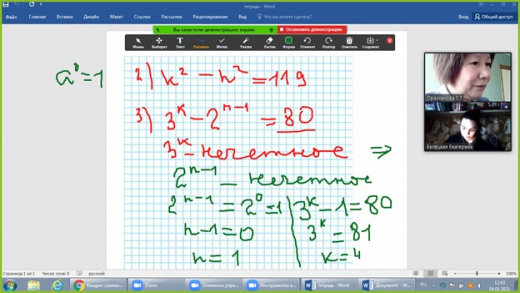 тетрадь - Word
Файл
Главная
Разметка страницы
Ссылки
Рассылки
Рецензирование
Вид
Что вы хотите сделать?
Вход
Общий доступ
Вы запустили демонстрацию экрана
Остановить демонстрацию
Мышь
Выбрать
Текст
Рисовать
Ластик
Формат
Отменить
Повторить
Очистить
Сохранить
a⁰=1
2) k² - n² = 119
3) 3ᵏ - 2ⁿ⁻¹ = 80
3ᵏ - нечетное ⇒
2ⁿ⁻¹ - нечетное
2ⁿ⁻¹ = 2⁰ = 1
3ᵏ - 1 = 80
n - 1 = 0
3ᵏ = 81
n = 1
k = 4
Белецкая Екатерина
Страница 1 из 1
Число слов: 0
русский
Квадрат суммы...
Zoom
Элементы управ...
Инструменты в...
тетрадь - Word
Документ - Word...
RU